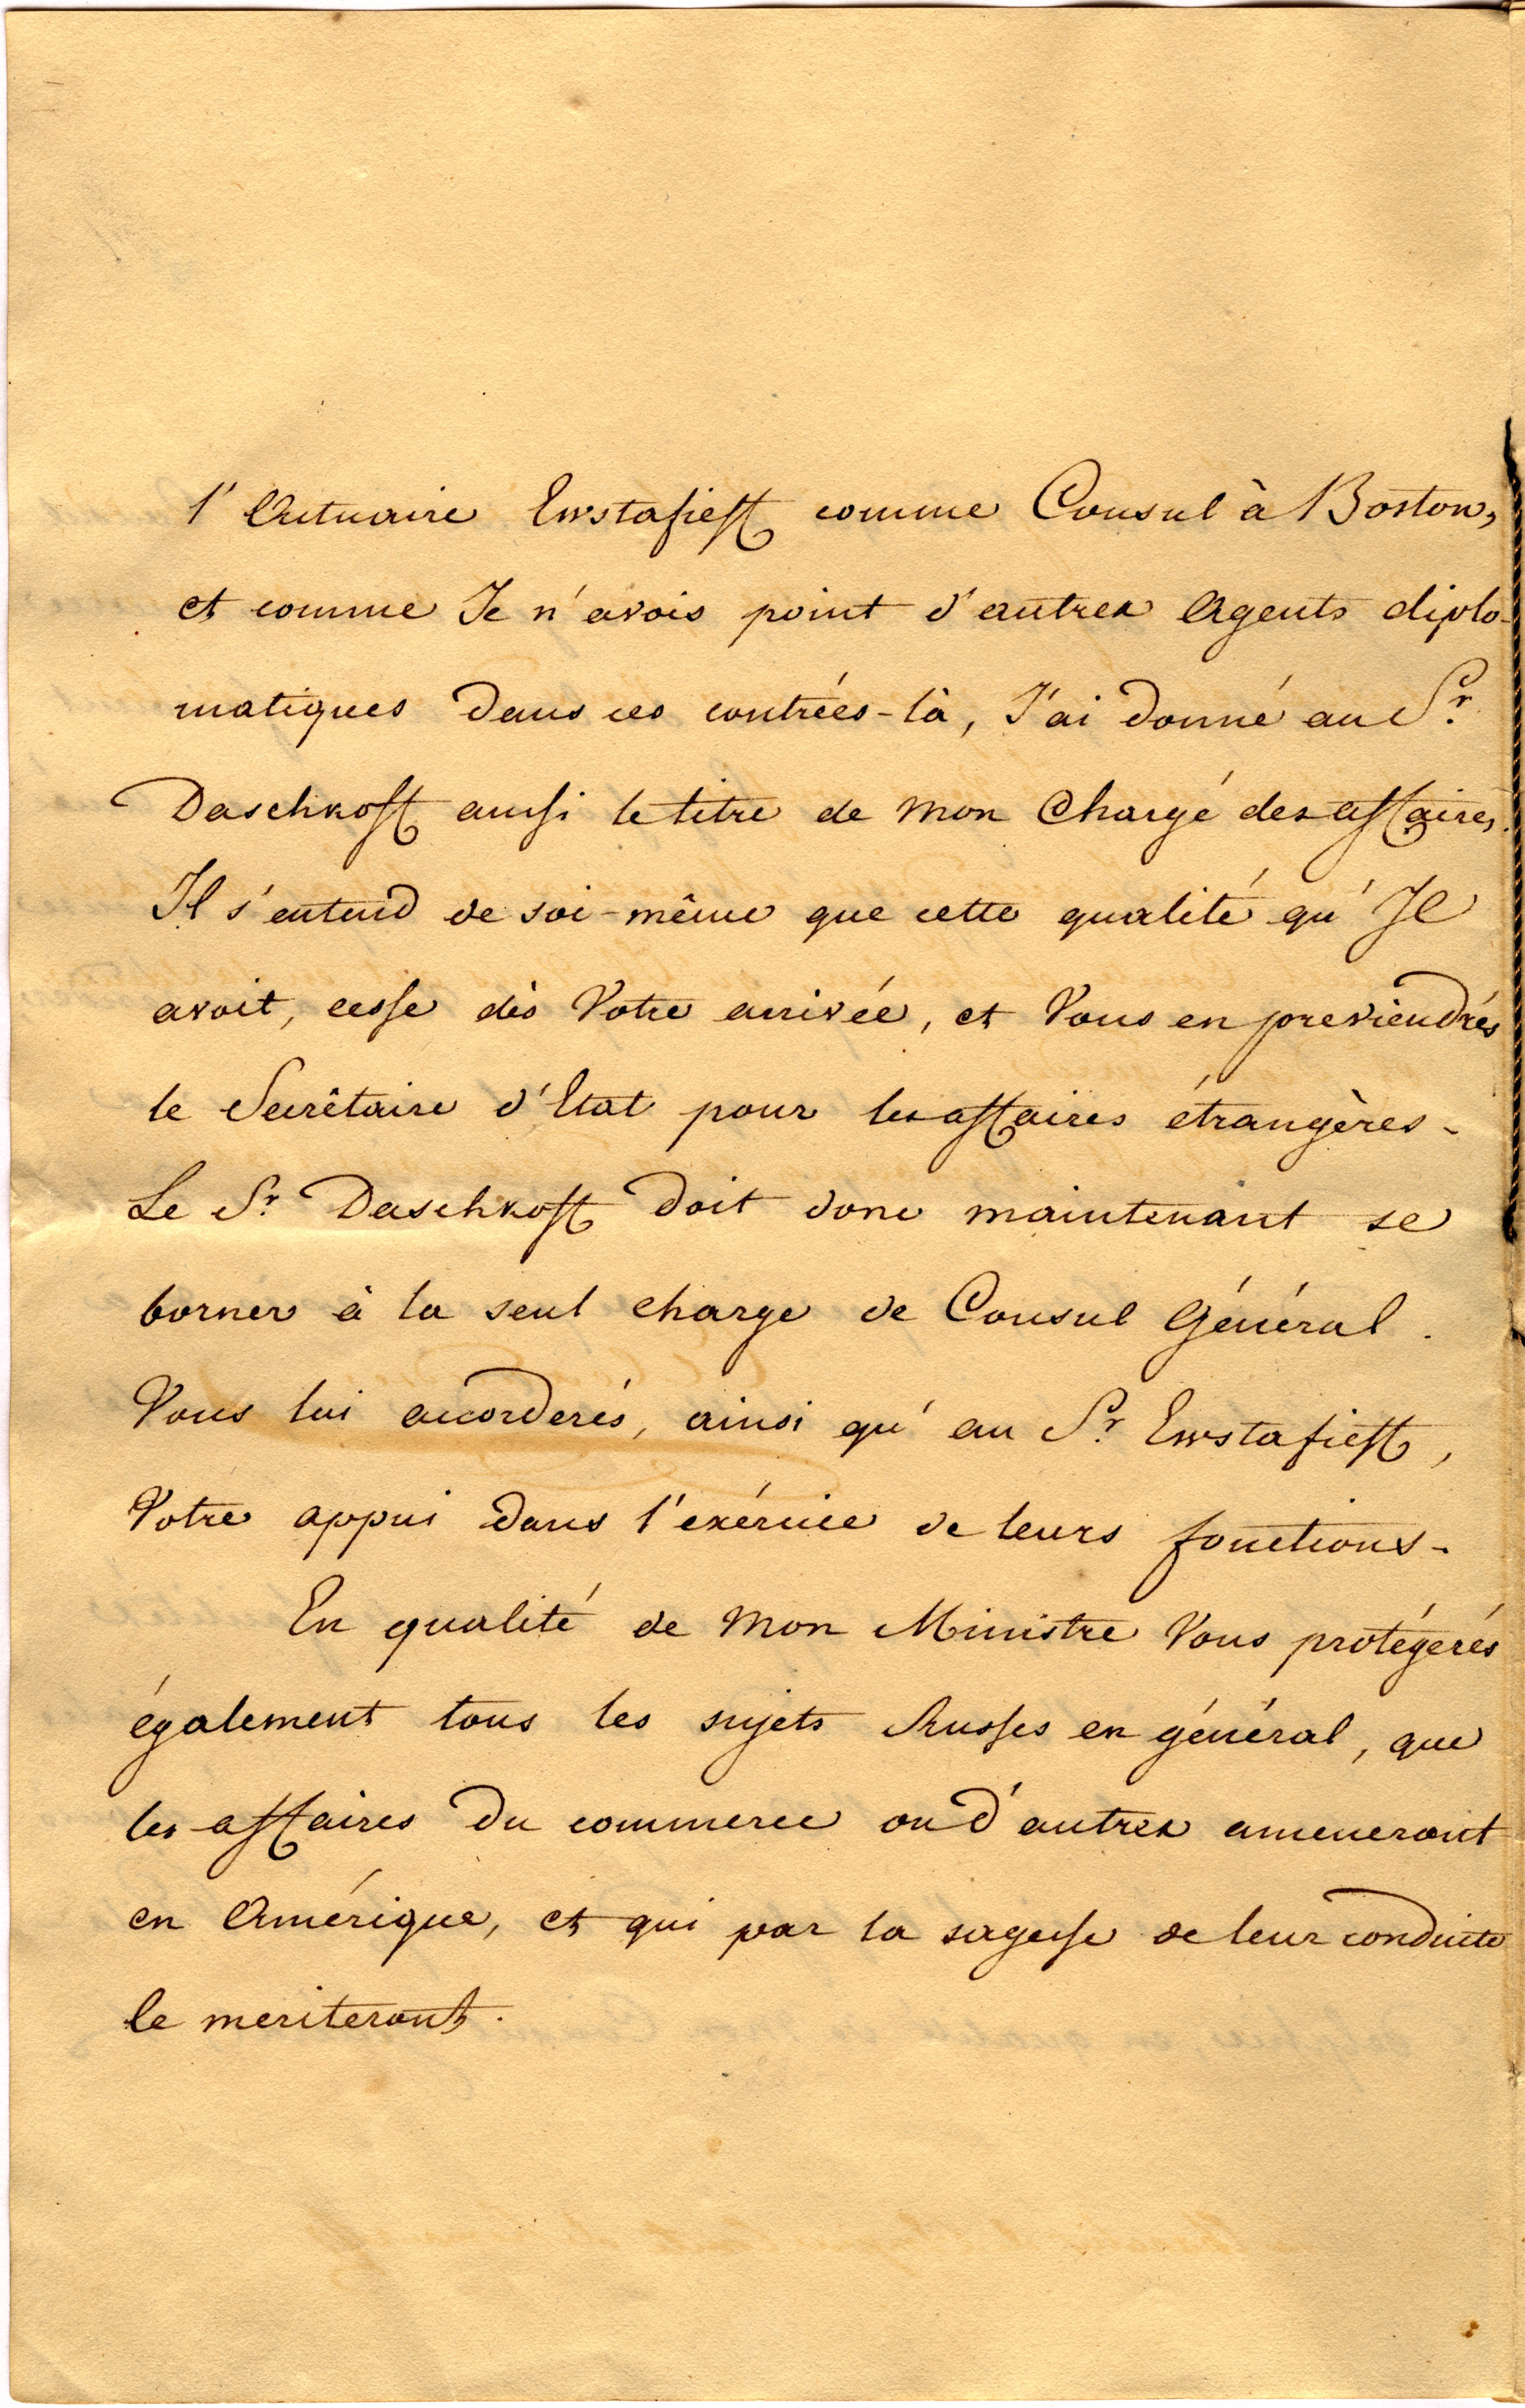 l'Actuaire Ewstafieff comme Consul à Boston,
et comme Je n'avois point d'autres Agents diplo-
matiques dans ces contrées-là, J'ai donné au Sr.
Daschkoff aussi le titre de Mon Chargé des affaires.
Il s'entend de soi-même que cette qualité qu'Il
avoit, cesse dès Votre arrivée, et Vous en previendrés
le Secrêtaire d'Etat pour les affaires étrangères.
Le Sr. Daschkoff doit donc maintenant se
borner à la seul charge de Consul Général.
Vous lui accorderés, ainsi qu'au Sr. Ewstafieff,
Votre appui dans l'exércice de leurs fonctions.
En qualité de Mon Ministre Vous protégerés
également tous les sujets Russes en général, que
les affaires du commerce ou d'autres ameneront
en Amérique, et qui par la sagesse de leur conduite
le meriteront.